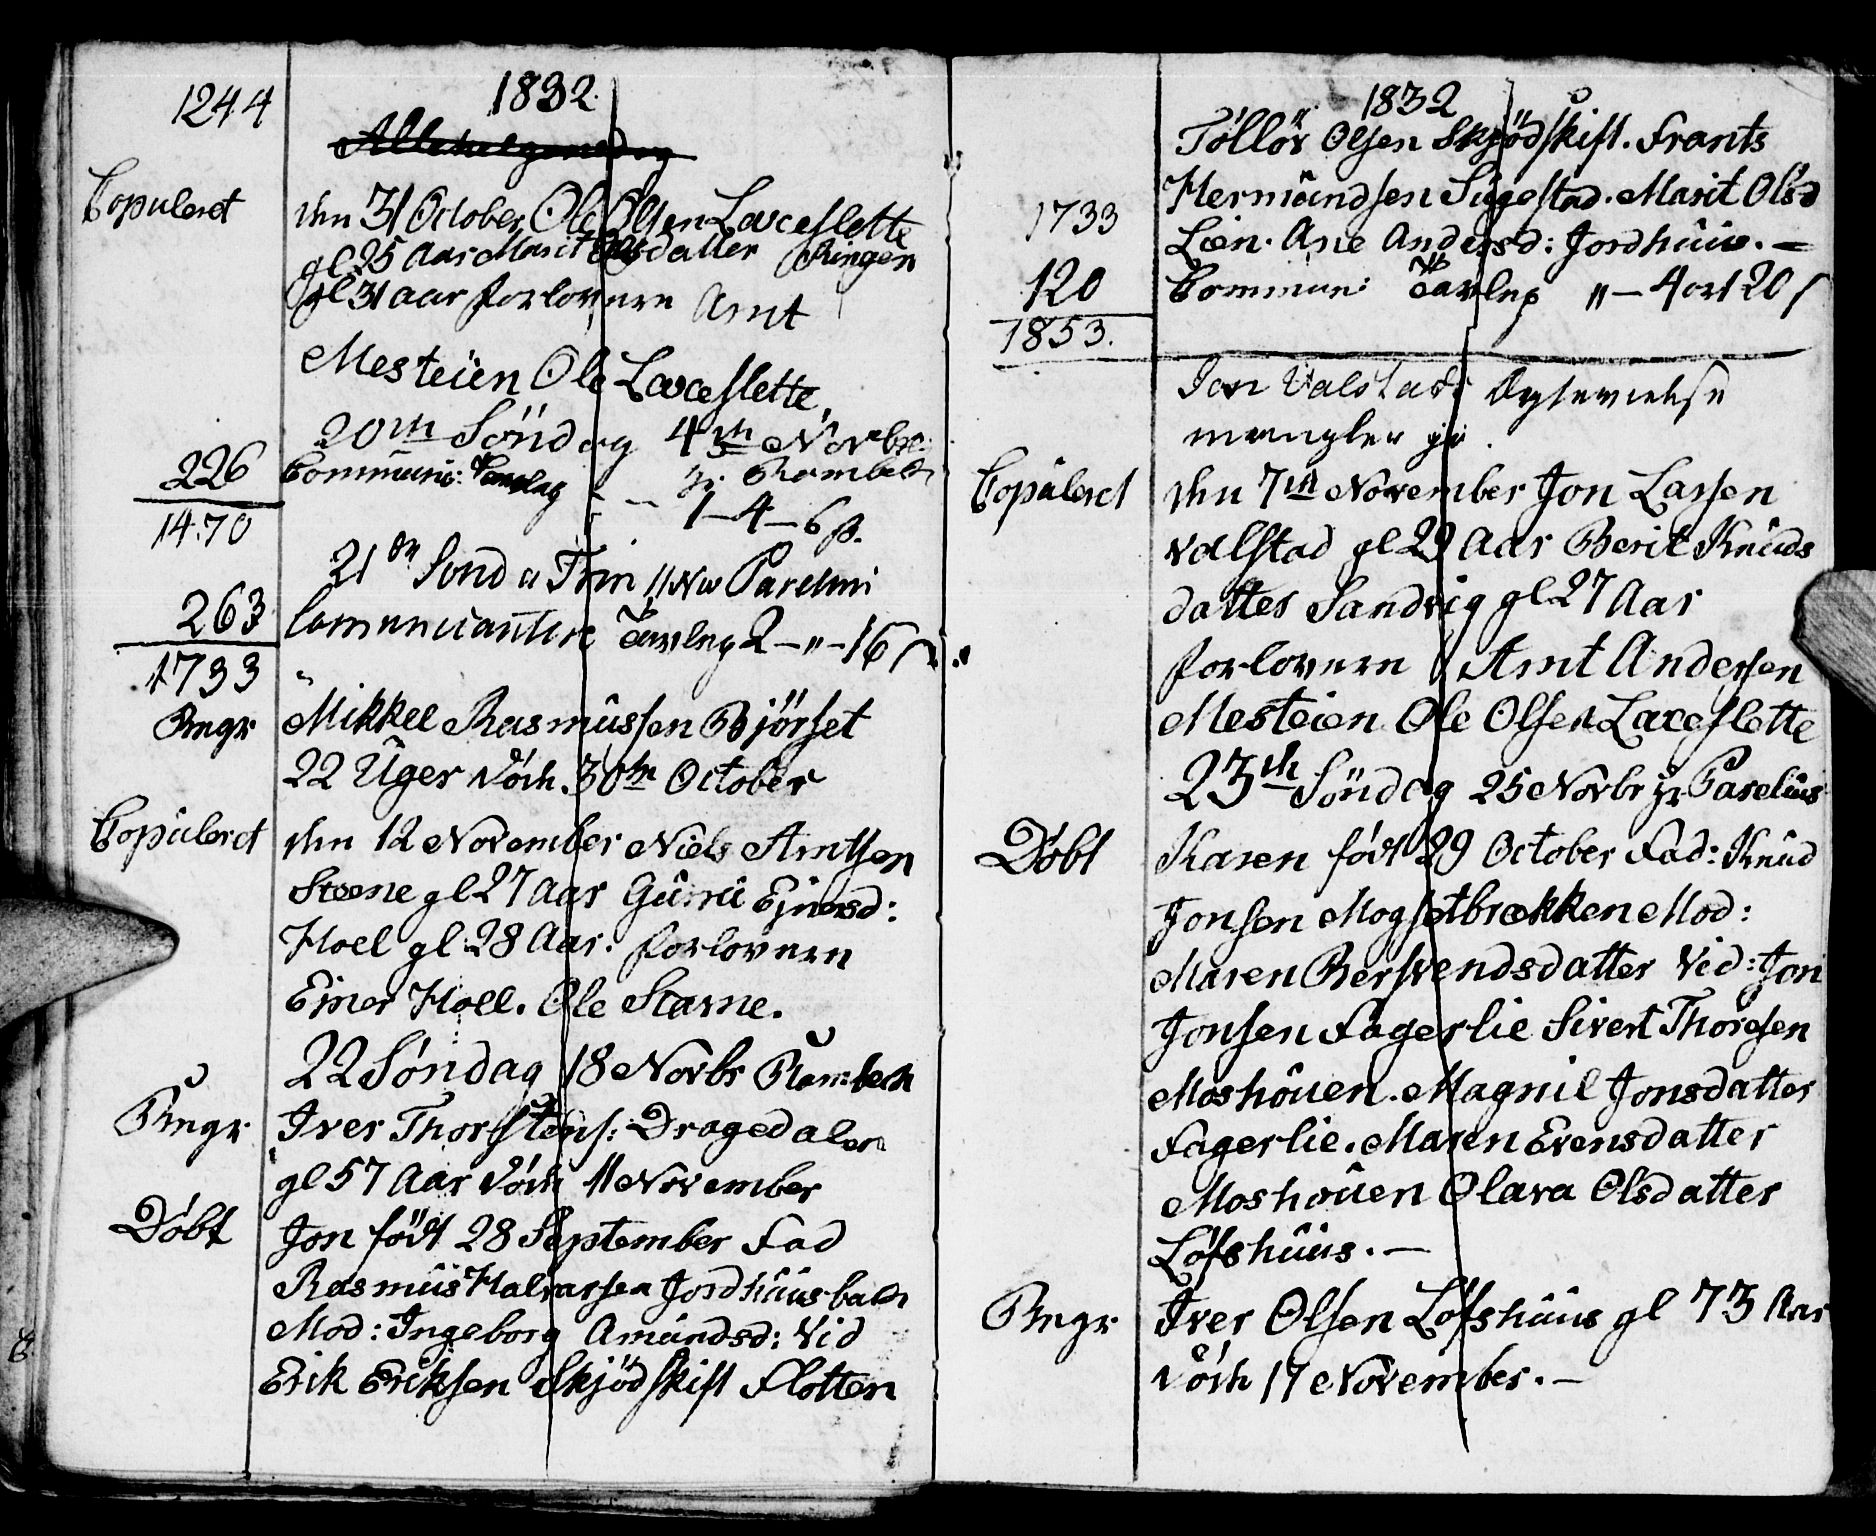 1244
1832
Allehelgensdag
Copuleret
den 31 October Ole Olsen Laxeslette
gl 25 Aar Marit Olsdatter Ringen
gl 31 aar forlovern Arnt
Mesteien Ole Laxeslette,
20de Söndag 4de Novbr:
226
Communi: Tavlag hr. Rambech
1470
1-4-6 s.
21de Sönd a Trin 11 Nov Parelius
263
Communicantere Tavlag 2-"-16 s
1733
Begr
Mikkel Rasmussen Bjørset
22 Uger Död 30te October
Copuleret
den 12 November Niels Arntsen
Steene gl 27 Aar Guru Ejnersd:
Hoel gl 28 Aar: forlovern
Ejner Hoel. Ole Stavne.
22 Søndag 18 Novbr Rambech
Begr
Iver Thorstens: Dragedalen
gl 57 Aar Död 11 November
Döbt
Jon född 28 September Fad
Rasmus Halvarsen Jordhuusbak
Mod: Ingeborg Amundsd: Vid
Erik Eriksen Skjödskift Flotten
1832
Töllöv Olsen Skjödskift. Frants
Hermundsen Sugestad. Marit Olsd
1733
Lien. Ane Andersd: Jordhuus. -
120
Commun: Tavlag "-4 ort 20 s
1853.
Jon Valstads
mangler
Copuleret
den 7de November Jon Larsen
Valstad gl 29 Aar Berit Knuds
datter Sandvig gl 27 Aar
forlovern Arnt Andersen
Mesteien Ole Olsen Laxeslette
23de Söndag 25 Novbr hr Parelius
Döbt
Karen född 29 October Fad: Knud
Jonsen Mogsetbrækken Mod:
Maren Bersvendsdatter Vid: Jon
Jonsen Fagerlie Sivert Thoresen
Moshouen. Magnil Jonsdatter
Fagerlie. Maren Evensdatter
Moshouen Olava Olsdatter
Löfshuus. -
Begr
Iver Olsen Löfshuus gl 73 Aar
Död 17 November. -